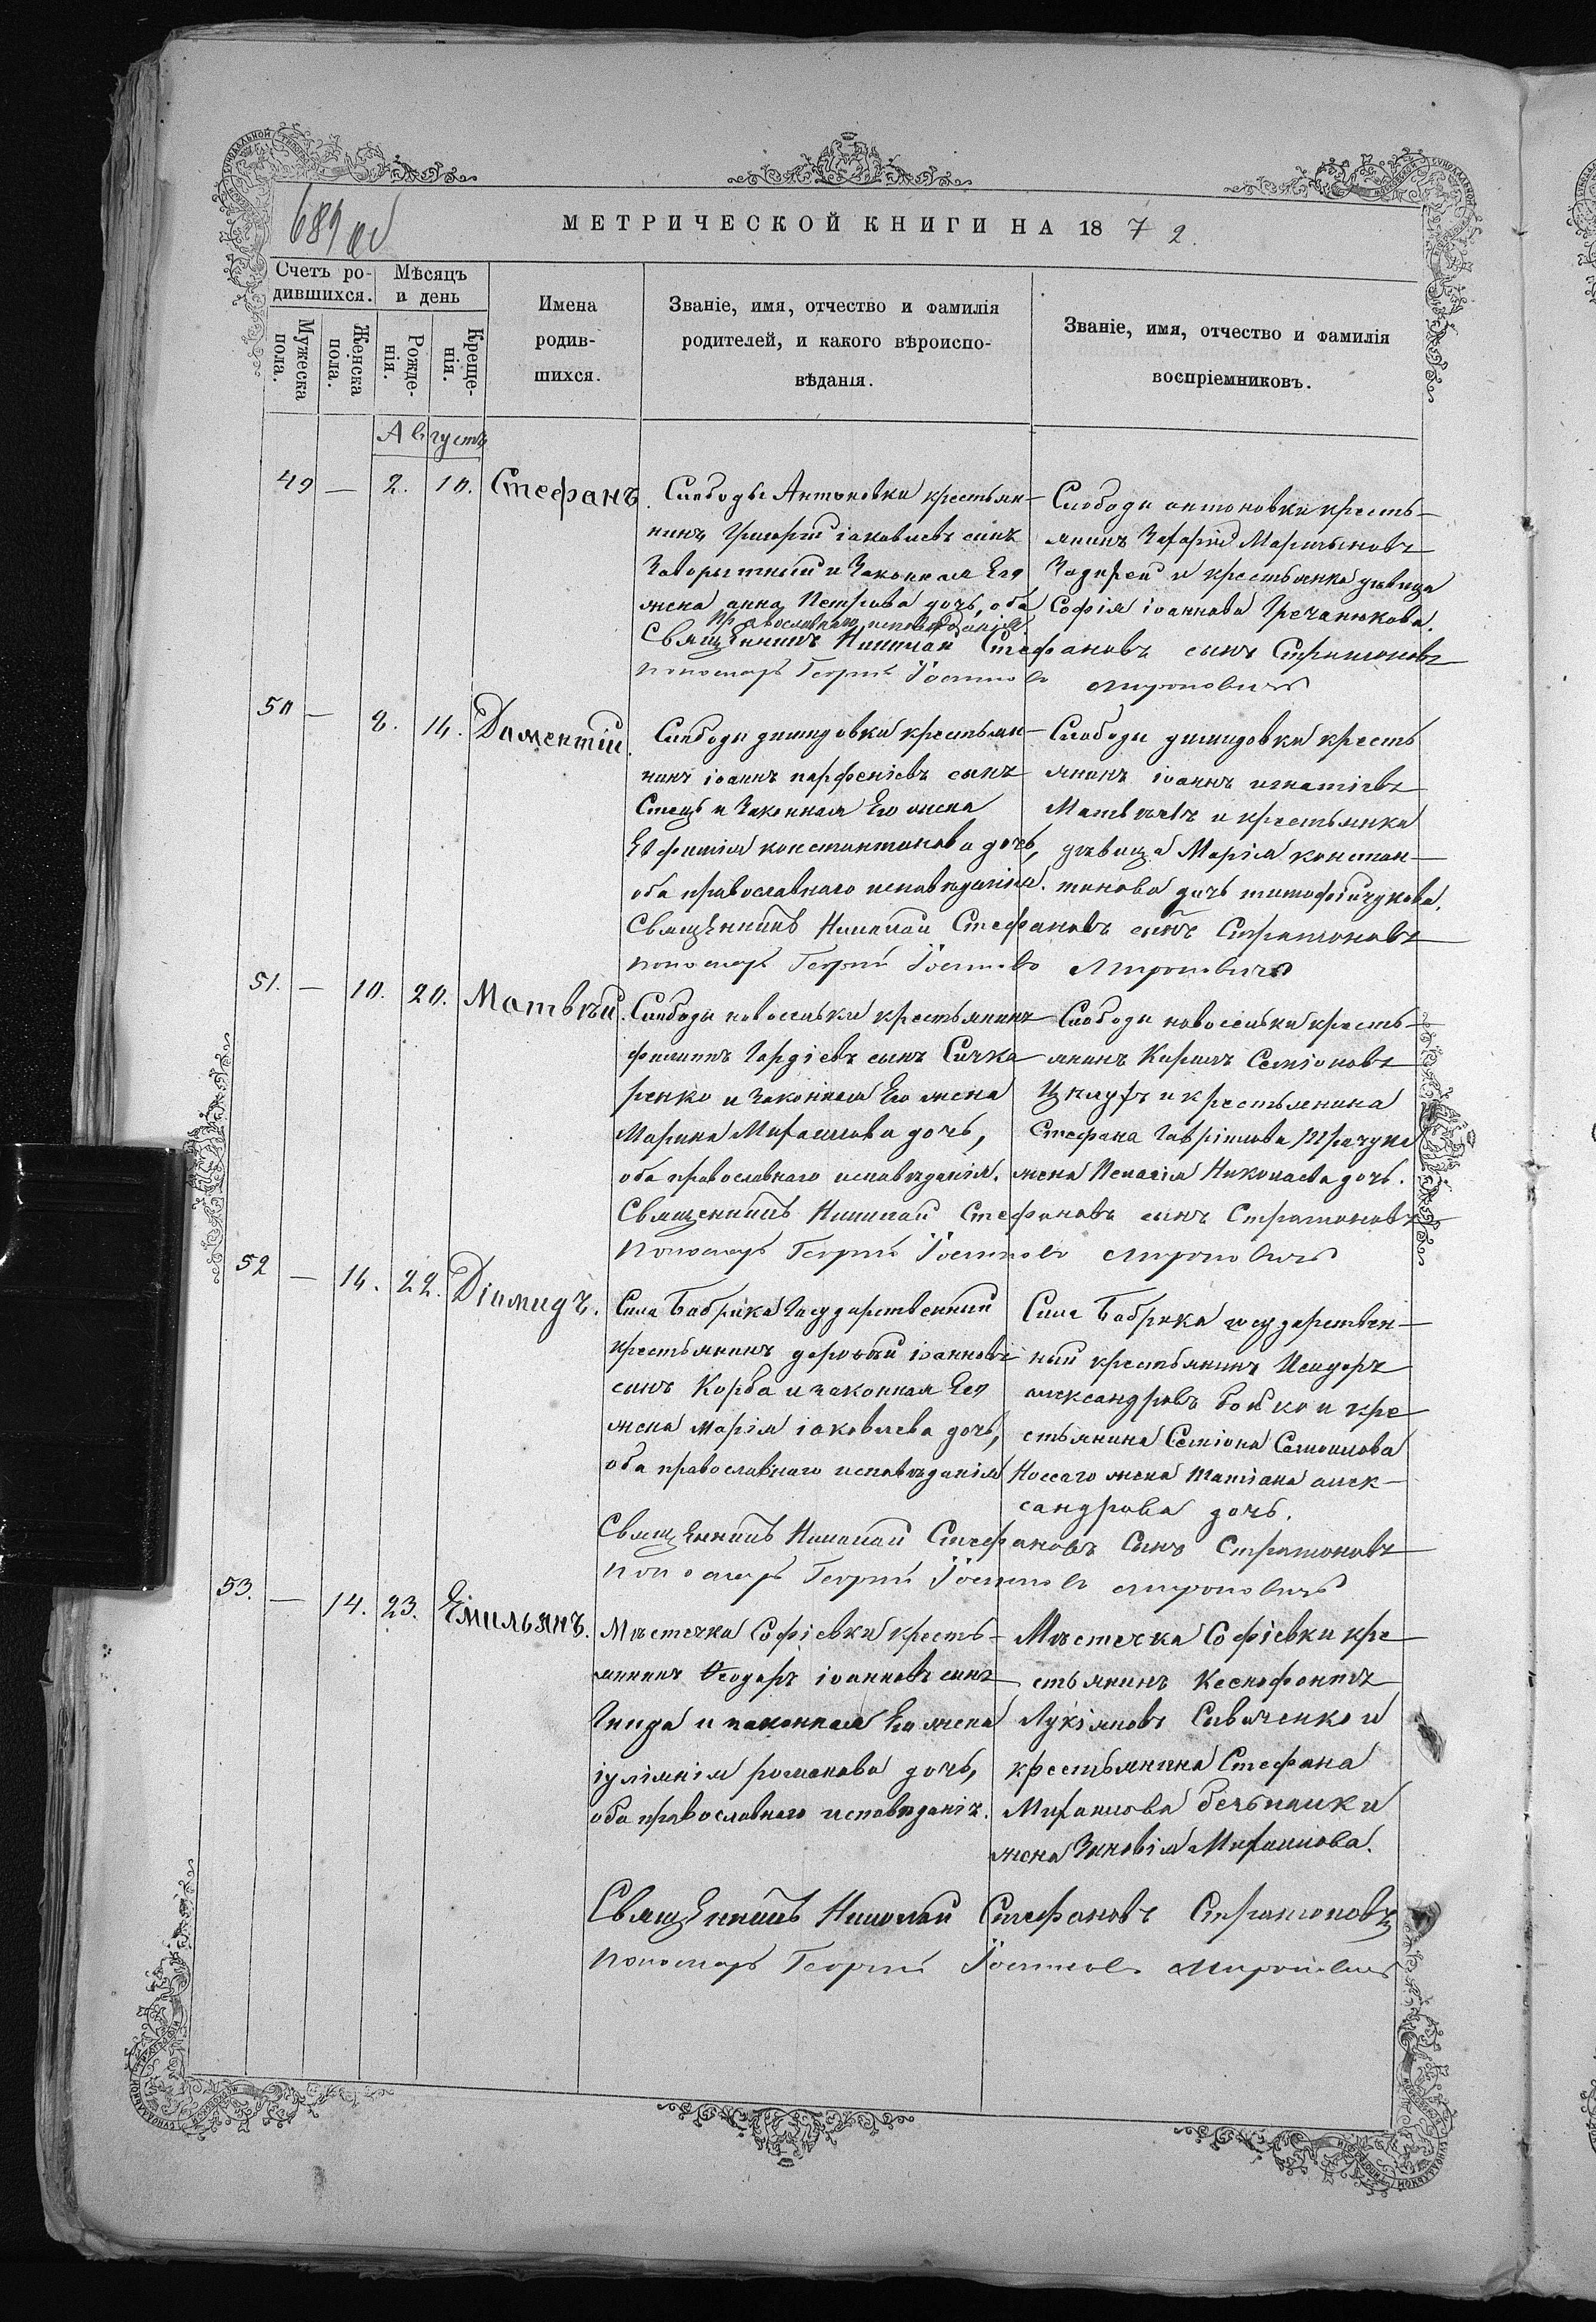 689 об
МЕТРИЧЕСКОЙ КНИГИ НА 1872.
Счетъ родившихся.
Мѣсяцъ и день
Мужеска пола.
Женска пола.
Рожденія.
Крещенія.
Имена
родив-
шихся.
Званіе, имя, отчество и фамилія
родителей, и какого вѣроиспо-
вѣданія.
Званіе, имя, отчество и фамилія
воспріемниковъ.
Августъ
49 — 2. 10. Стефанъ.
Слободы Антоновки крестьян-
нинъ Григорій іаковлевъ сынъ
и Законная Его
жена анна Петрова дочь, оба
православнаго исповѣданія
Слободи антоновки кресть-
янинъ Захарій Мартыновъ
Задирей и крестьянка дѣвица
Софія іоаннова Гречанюкова.
Священникъ Николай Стефановъ сынъ Стратоновъ
пономарь Георгій Іосифовъ Мироновичъ
50 — 8. 14. Дометій.
Слободи демидовки крестьян-
нинъ іоаннъ парфеніевъ сынъ
Стець и Законная Его жена
Евфимія константинова дочь,
оба православнаго исповѣданія.
Слободи демидовки кресть
янинъ іоаннъ игнатіевъ
и крестьянка
дѣвица Марія констан-
тинова дочь
Священникъ Николай Стефановъ сынъ Стратоновъ
пономарь Георгій Іосифовъ Мироновичъ
51. — 10. 20. Матвѣй.
Слободи новоселовки крестьянинъ
филиппъ Гордіевъ сынъ Сичка
ренко и законная Его жена
Марина Михаилова дочь,
оба православнаго исповѣданія.
Слободи новоселовки кресть-
янинъ Кирилъ Семіоновъ
и крестьянина
Стефана Гавріилова
жена Пелагія Николаева дочь.
Священникъ Николай Стефановъ сынъ Стратоновъ
Пономарь Георгій Іосифовъ Мироновичъ
52 — 14. 22. Діомидъ.
Села Бабрика Государственный
крестьянинъ дорофей іоанновъ
сынъ Корба и законная Его
жена марія іаковлева дочь,
оба православнаго исповѣданія
Села Бабрика государствен-
ный крестьянинъ Исидоръ
александровъ бойко и кре
стьянина Семіона Самоилова
Носсаго жена татіана алек-
сандрова дочь.
Священникъ Николай Стефановъ Сынъ Стратоновъ
пономарь Георгій Іосифовъ Мироновичъ
53. — 14. 23. Емильянъ.
Мѣстечка Софіевки кресть-
янинъ Ѳеодоръ іоанновъ сынъ
Гнида и законная Его жена
іуліанія романова дочь,
оба православнаго исповѣданія.
Мѣстечка Софіевки кре
стьянинъ Ксенофонтъ
Лукіановъ Саваченко и
крестьянина Стефана
Михаилова
жена Зиновія Михаилова.
Священникъ Николай Стефановъ Стратоновъ
пономарь Георгій Іосифовъ Мироновичъ